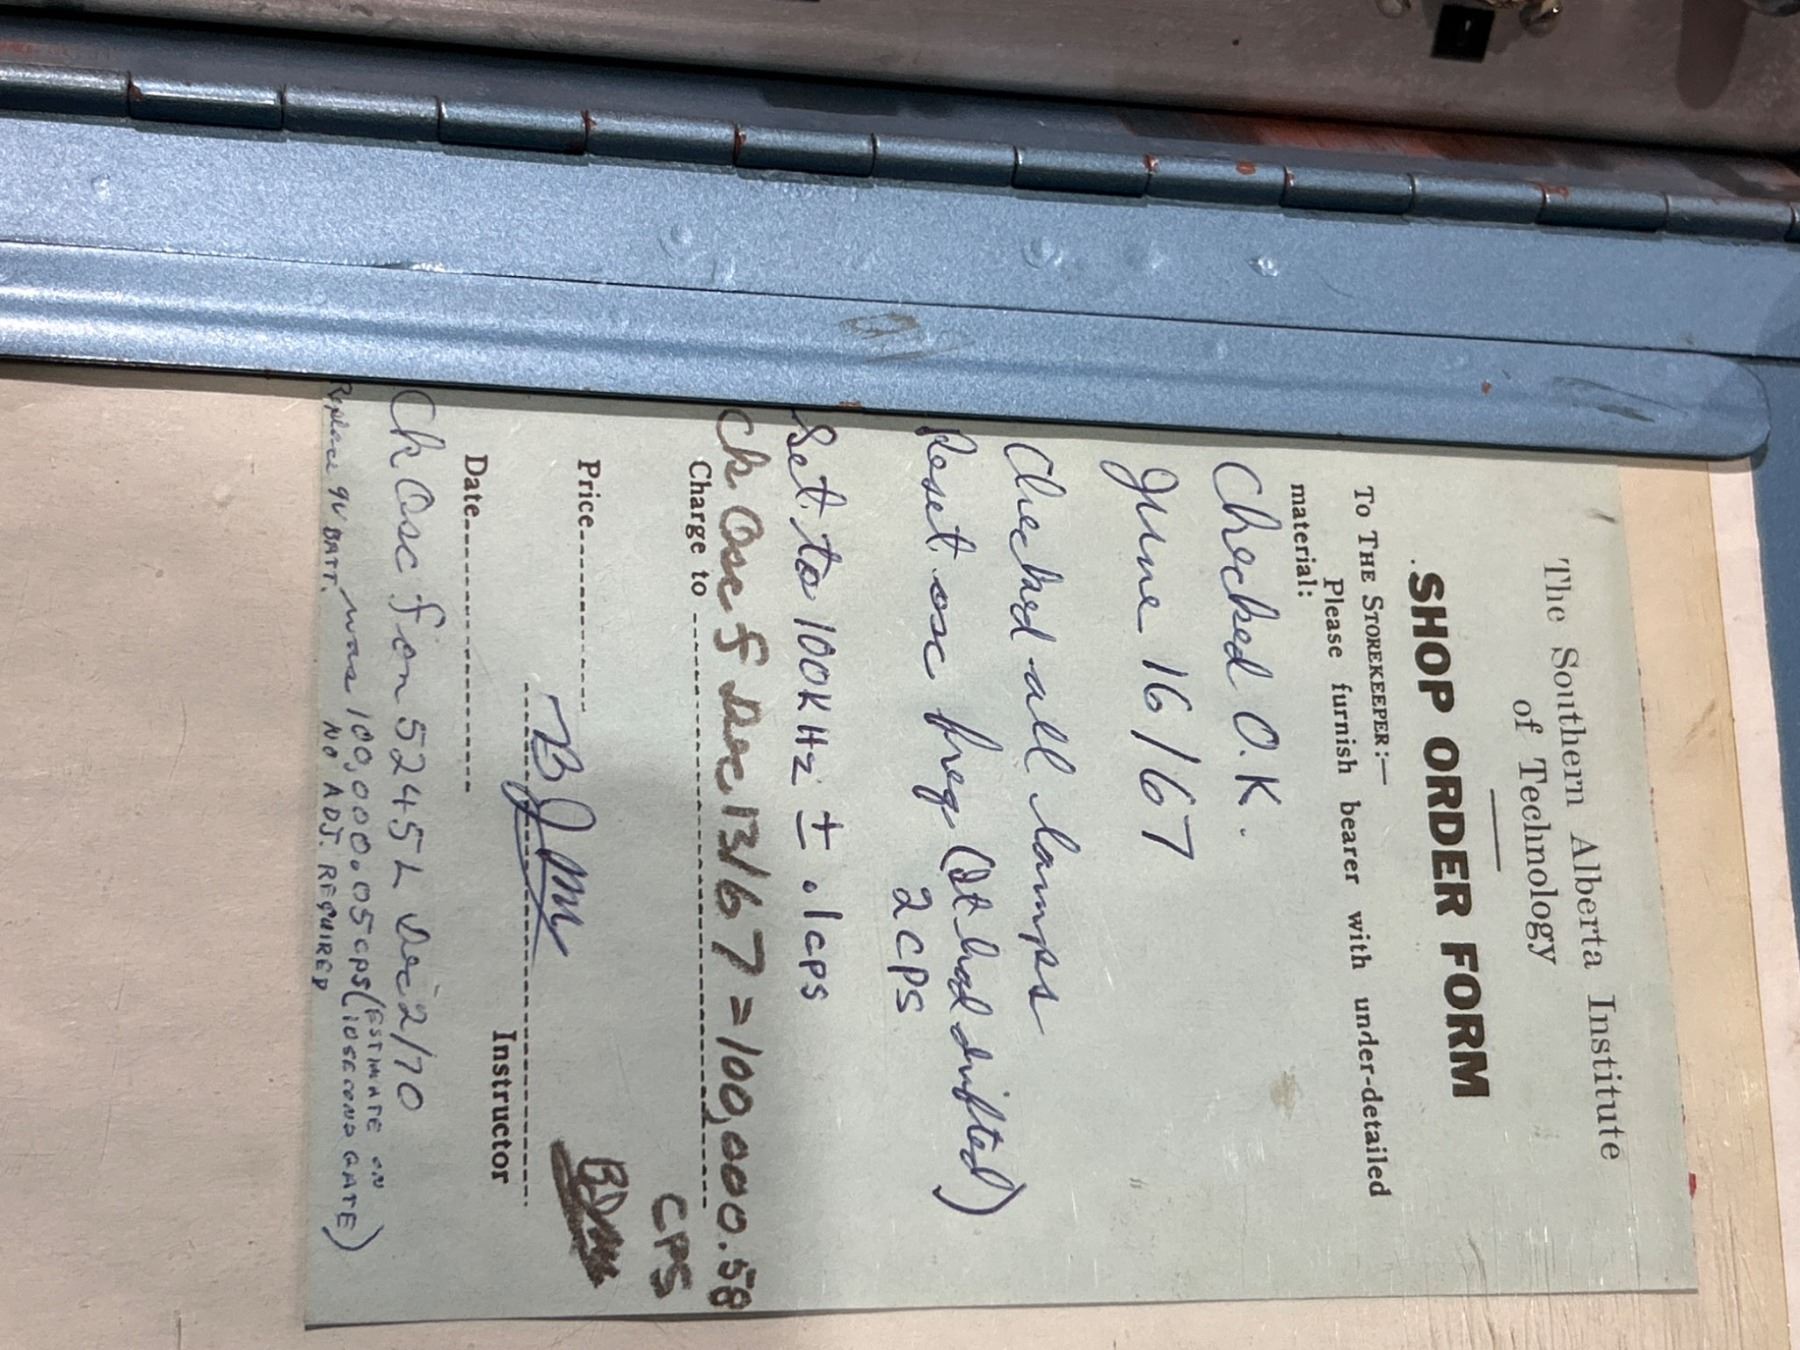 The Southern Alberta Institute
of Technology
SHOP ORDER FORM
To THE STOREKEEPER:—
Please furnish bearer with under-detailed
material:
Checked O.K.
June 16/67
Checked all lamps
Reset osc freq (It had drifted)
2 CPS
Set to 100KHz ± .1cps
Ch Osc f Dec 13/67 = 100,000.58
CPS
Charge to
Price
BJM
BJM
Instructor
Date
Ch Osc f on 5245L Dec 2/70
Replace 9V BATT. was 100,000.05cps (ESTIMATE ON
10 SECOND GATE)
NO ADJ. REQUIRED